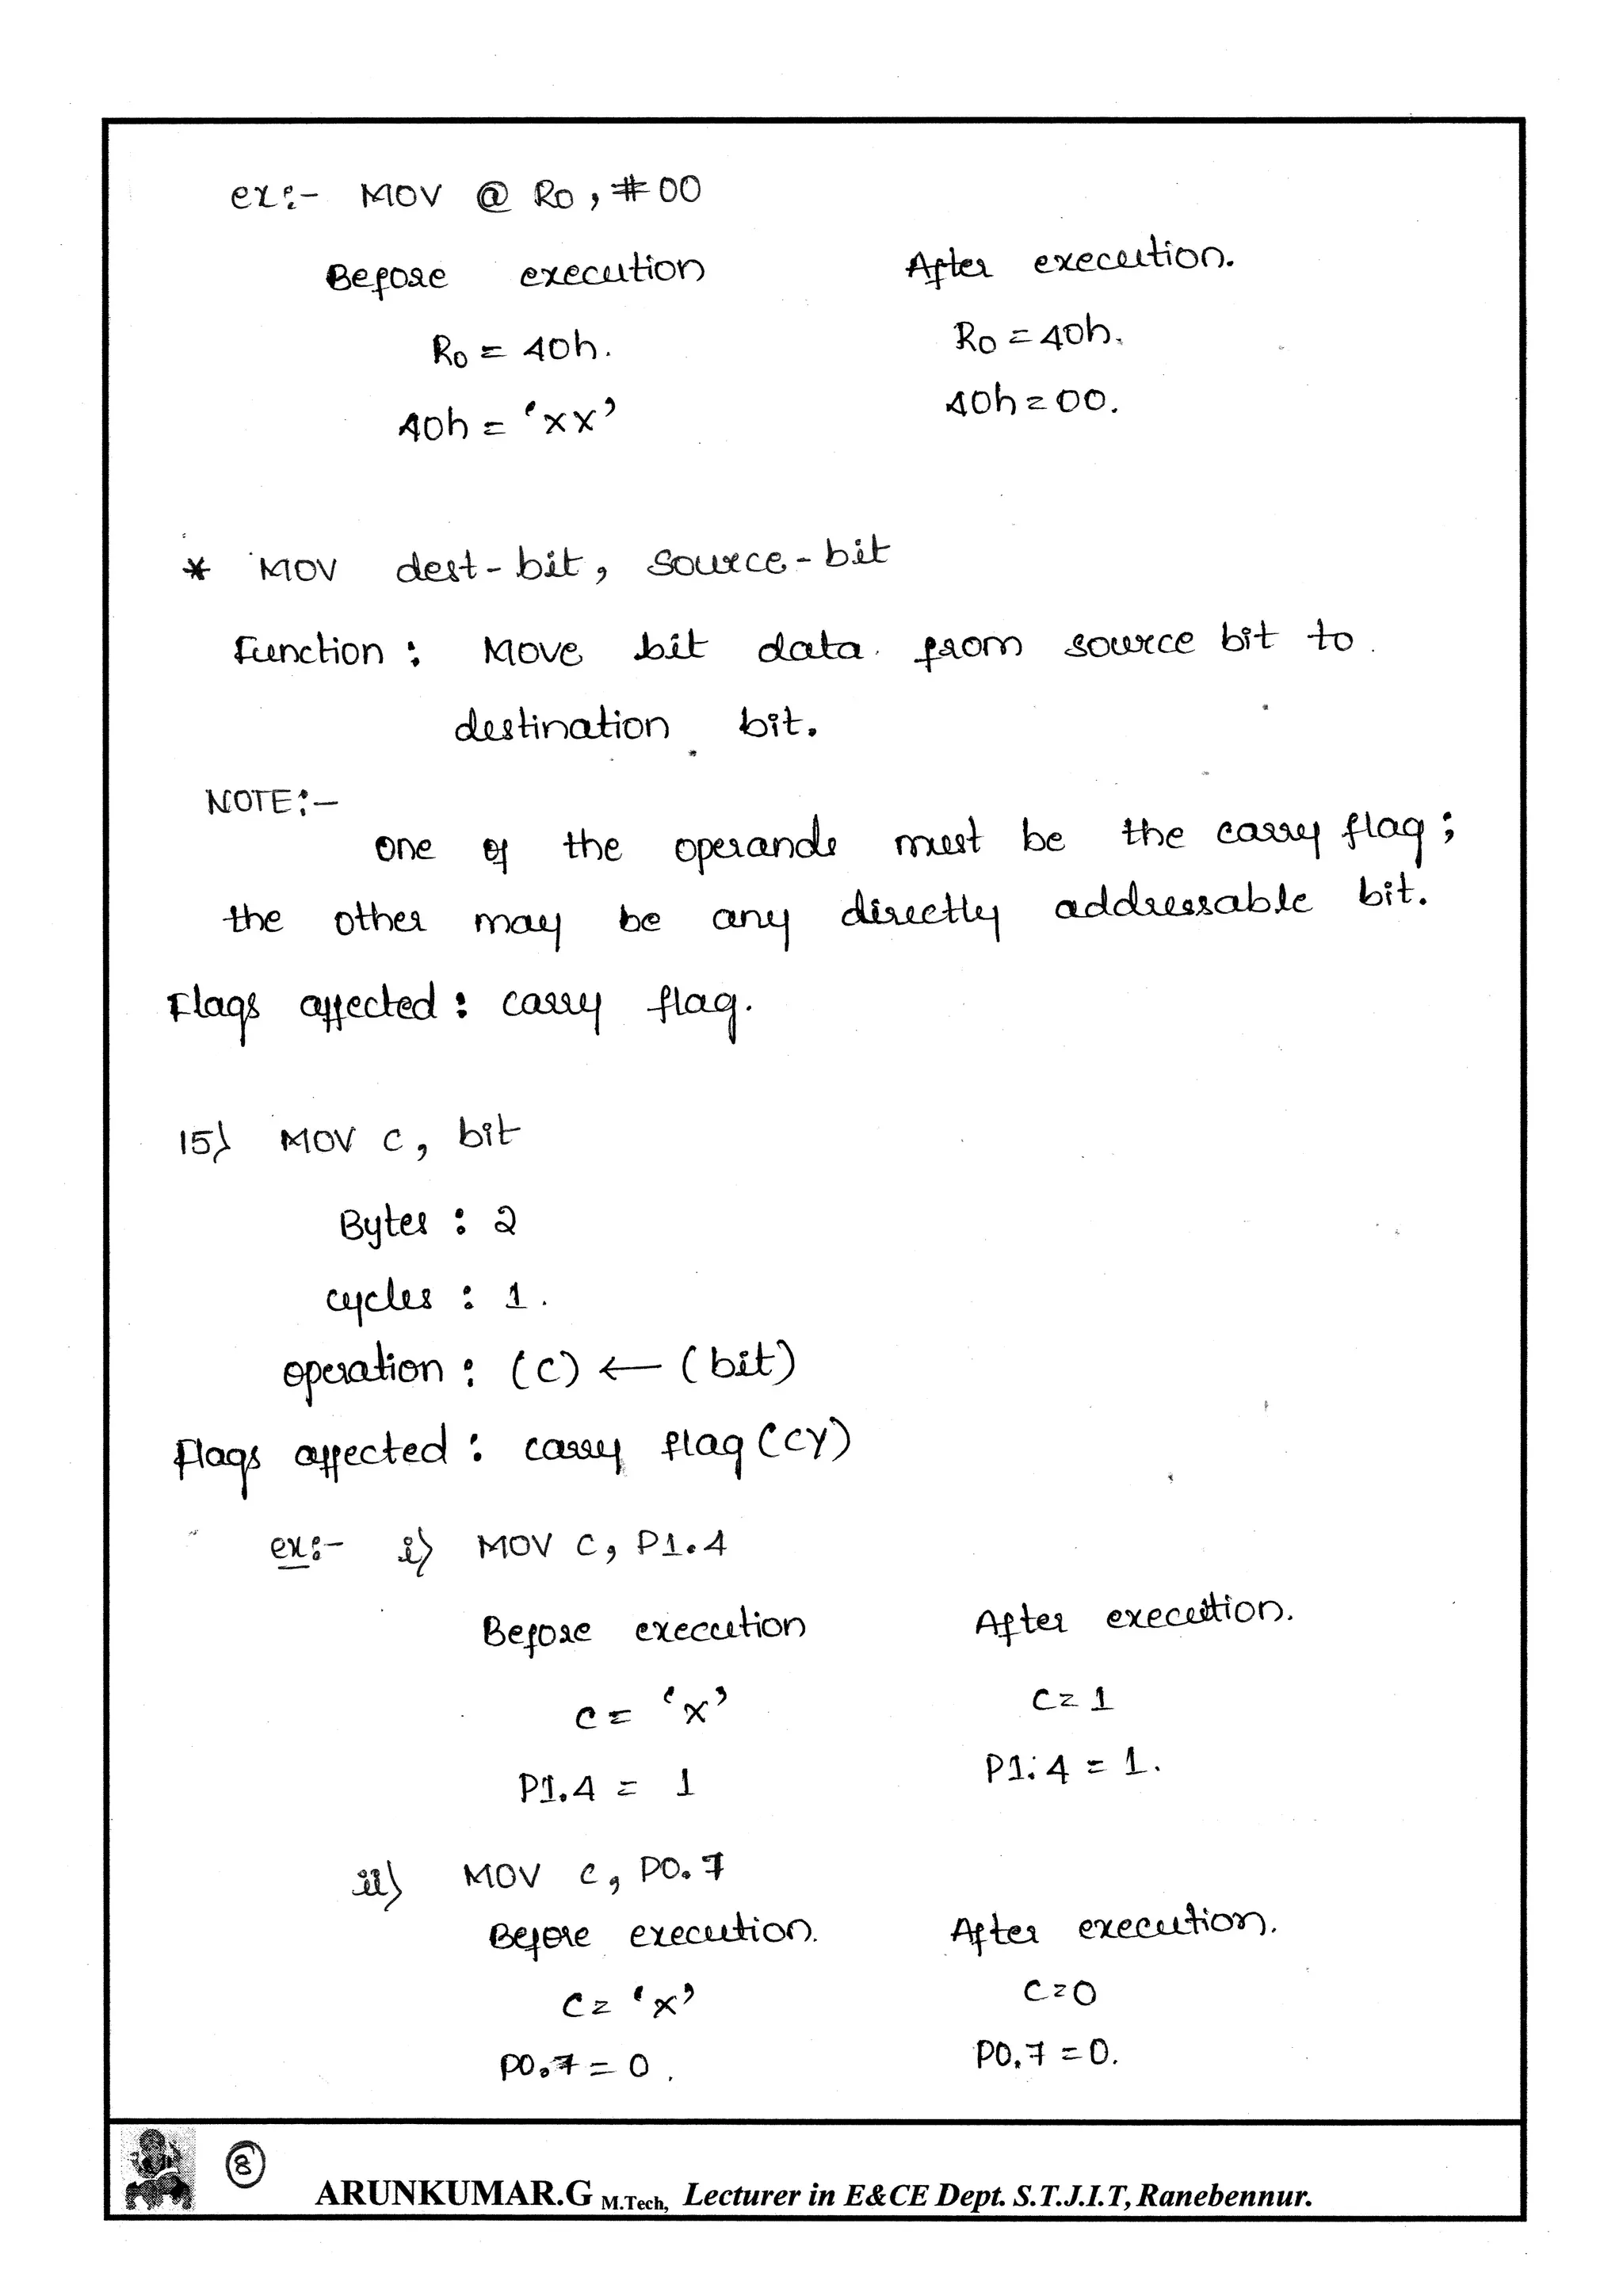 ex:- MOV @ R0, #00
Before execution After execution.
R0 = 40h. R0 = 40h.
40h = ‘XX’ 40h = 00.
* MOV dest-bit, source-bit
Function : Move bit data from source bit to
destination bit.
NOTE:-
One of the operands must be the carry flag;
the other may be any directly addressable bit.
Flags affected : carry flag.
15) MOV C, bit
Bytes : 2
cycles : 1.
operation : (C) ← (bit)
Flags affected : carry flag (CY)
ex:- i) MOV C, P1.4
Before execution After execution.
C = ‘X’ C = 1
P1.4 = 1 P1.4 = 1.
ii) MOV C, P0.7
Before execution. After execution.
C = ‘X’ C = 0
P0.7 = 0. P0.7 = 0.
8
ARUNKUMAR.G M.Tech, Lecturer in E&CE Dept. S.T.J.I.T, Ranebennur.